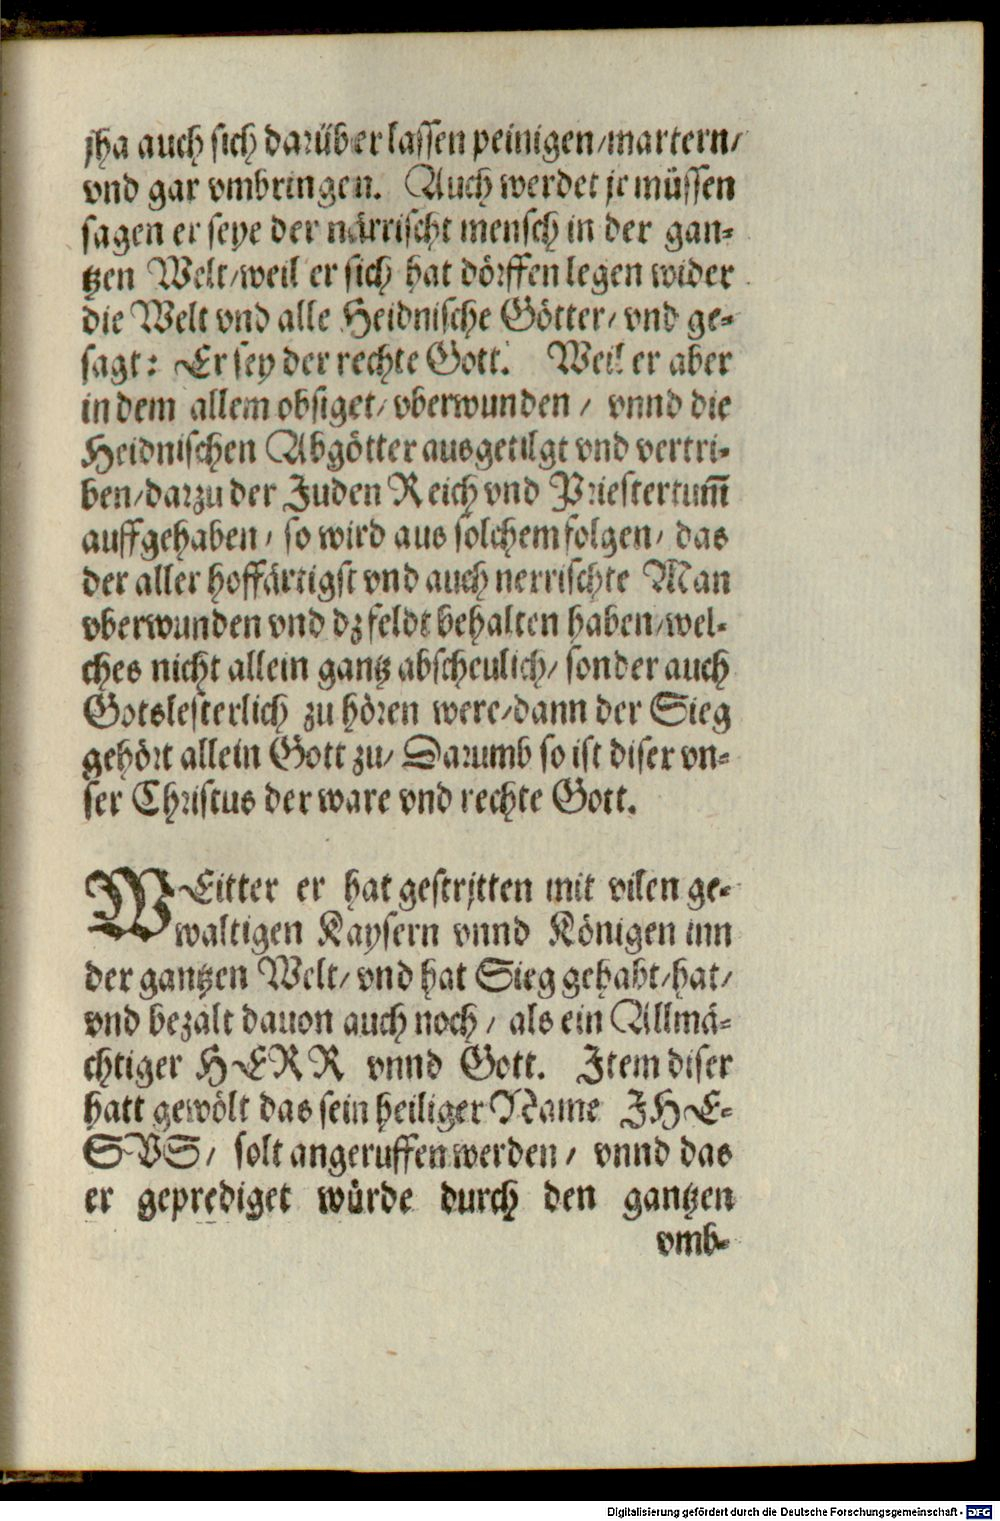 jha auch sich darüber lassen peinigen/martern/
vnd gar vmbringen. Auch werdet jr müssen
sagen er seye der närrischt mensch in der gan-
tzen Welt/weil er sich hat dörffen legen wider
die Welt vnd alle Heidnische Götter/ vnd ge-
sagt: Er sey der rechte Gott. Weil er aber
in dem allem obsiget/ vberwunden / vnnd die
Heidnischen Abgötter ausgetilgt vnd vertri-
ben/darzu der Juden Reich vnd Priestertum̃
auffgehaben / so wird aus solchem folgen/ das
der aller hoffärtigst vnd auch nerrischte Man
vberwunden vnd dz feldt behalten haben/wel-
ches nicht allein gantz abscheulich/ sonder auch
Gotslesterlich zu hören were/dann der Sieg
gehört allein Gott zu/ Darumb so ist diser vn-
ser Christus der ware vnd rechte Gott.
WEitter er hat gestrjtten mit vilen ge-
waltigen Kaysern vnnd Königen inn
der gantzen Welt/ vnd hat Sieg gehabt/hat/
vnd bezalt dauon auch noch / als ein Allmä-
chtiger HERR vnnd Gott. Item diser
hatt gewölt das sein heiliger Name IHE-
SVS / solt angeruffen werden / vnnd das
er geprediget würde durch den gantzen
vmb-
Digitalisierung gefördert durch die Deutsche Forschungsgemeinschaft - DFG